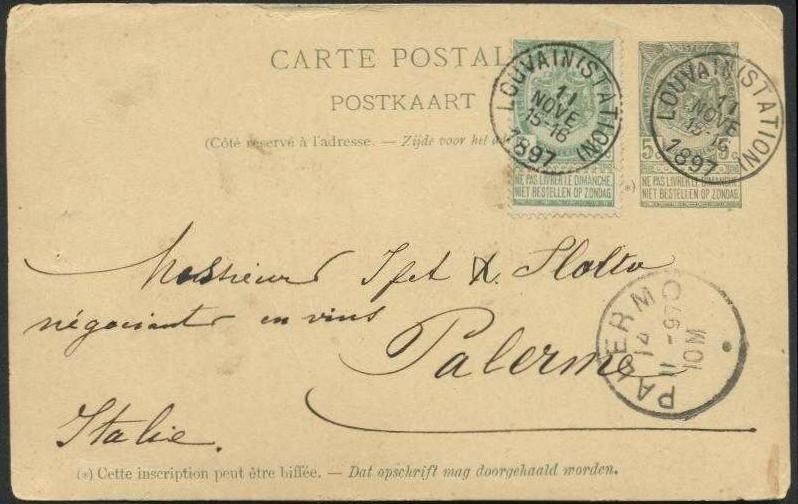 CARTE POSTAL
POSTKAART
(Côté réservé à l'adresse. — Zijde voor het
LOUVAIN (STATION)
11
NOVE
15-16
1897
NE PAS LIVRER LE DIMANCHE
NIET BESTELLEN OP ZONDAG
LOUVAIN (STATION)
11
NOVE
15-16
1897
5 5c
(*) NE PAS LIVRER LE DIMANCHE
NIET BESTELLEN OP ZONDAG
Messieurs
négociants en vins
Palerme
Italie.
PALERMO
14
11-97
10M
(*) Cette inscription peut être biffée. — Dat opschrift mag doorgehaald worden.